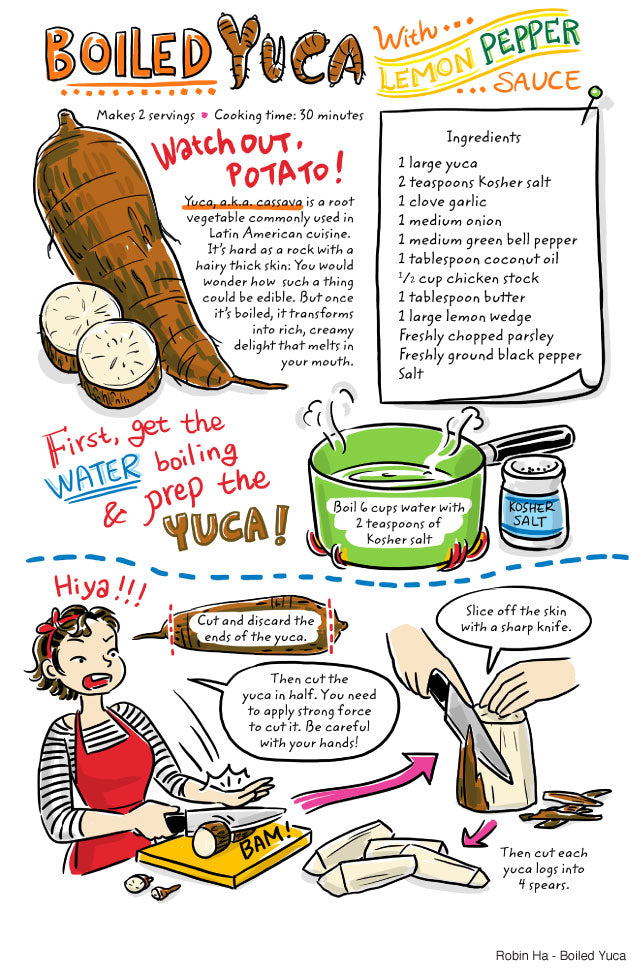 BOILED YUCA
With...
LEMON PEPPER
...SAUCE
Makes 2 servings • Cooking time: 30 minutes
Watch OUT,
POTATO!
Yuca, a.k.a. cassava is a root
vegetable commonly used in
Latin American cuisine.
It's hard as a rock with a
hairy thick skin: You would
wonder how such a thing
could be edible. But once
it's boiled, it transforms
into rich, creamy
delight that melts in
your mouth.
Ingredients
1 large yuca
2 teaspoons Kosher salt
1 clove garlic
1 medium onion
1 medium green bell pepper
1 tablespoon coconut oil
1/2 cup chicken stock
1 tablespoon butter
1 large lemon wedge
Freshly chopped parsley
Freshly ground black pepper
Salt
First, get the
WATER boiling
& prep the
YUCA!
Boil 6 cups water with
2 teaspoons of
Kosher salt
KOSHER
SALT
Hiya!!!
Cut and discard the
ends of the yuca.
Then cut the
yuca in half. You need
to apply strong force
to cut it. Be careful
with your hands!
BAM!
Slice off the skin
with a sharp knife.
Then cut each
yuca logs into
4 spears.
Robin Ha - Boiled Yuca